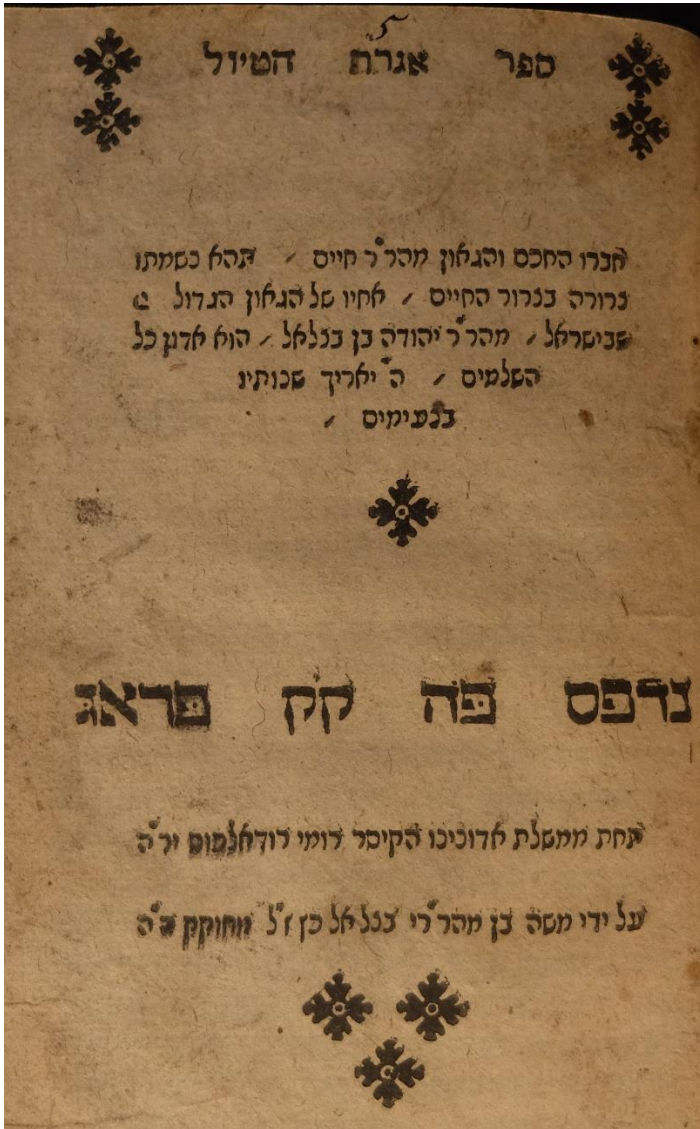 ספר אגרת הטיול
חברו החכם והגאון מהר"ר חיים / תהא נשמתו
ברורה בצרור החיים / אחיו של הגאון הגדול
שבישראל / מהר"ר יהודה בן בצלאל / הוא אדון כל
השלמים / ה' יאריך שנותיו
בנעימים /
נדפס פה קק פראג
תחת ממשלת אדונינו הקיסר רומי רודאלפוס יר"ה
על ידי משה בן מהר"רי בצלאל כץ ז"ל מחוקק